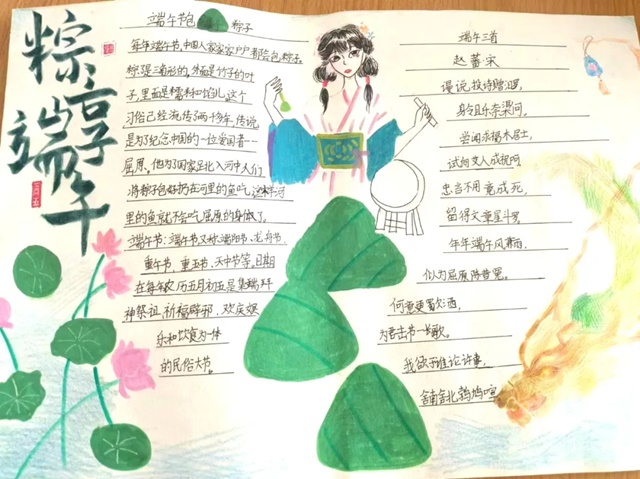 粽言端午
端午节包粽子
每年端午节,中国人家家户户都会包粽子.
粽子是三角形的,外面是竹子的叶
子,里面是糯米和馅儿,这个
习俗已经流传了两千多年,传说
是为了纪念中国的一位爱国者——
屈原。他为了国家
将粽子包好扔在河里的鱼吃,这样河
里的鱼就不会吃屈原的身体了。
端午节:端午节又称端阳节、龙舟节、
重午节、重五节、天中节等。日期
在每年农历五月初五是集
神祭祖、祈福辟邪、欢庆娱
乐和饮食为一体
的民俗大节。
端午三首
赵蕃·宋
谩说投诗赠汨罗,
身今且乐奈渠何。
尝闻求福木居士,
试向艾人成祝呵
忠言不用竟成死,
留得文章星斗罗
年年端午风兼雨,
似为屈原陈昔冤。
我欲于谁论许事,
舍南舍北鹁鸠喧